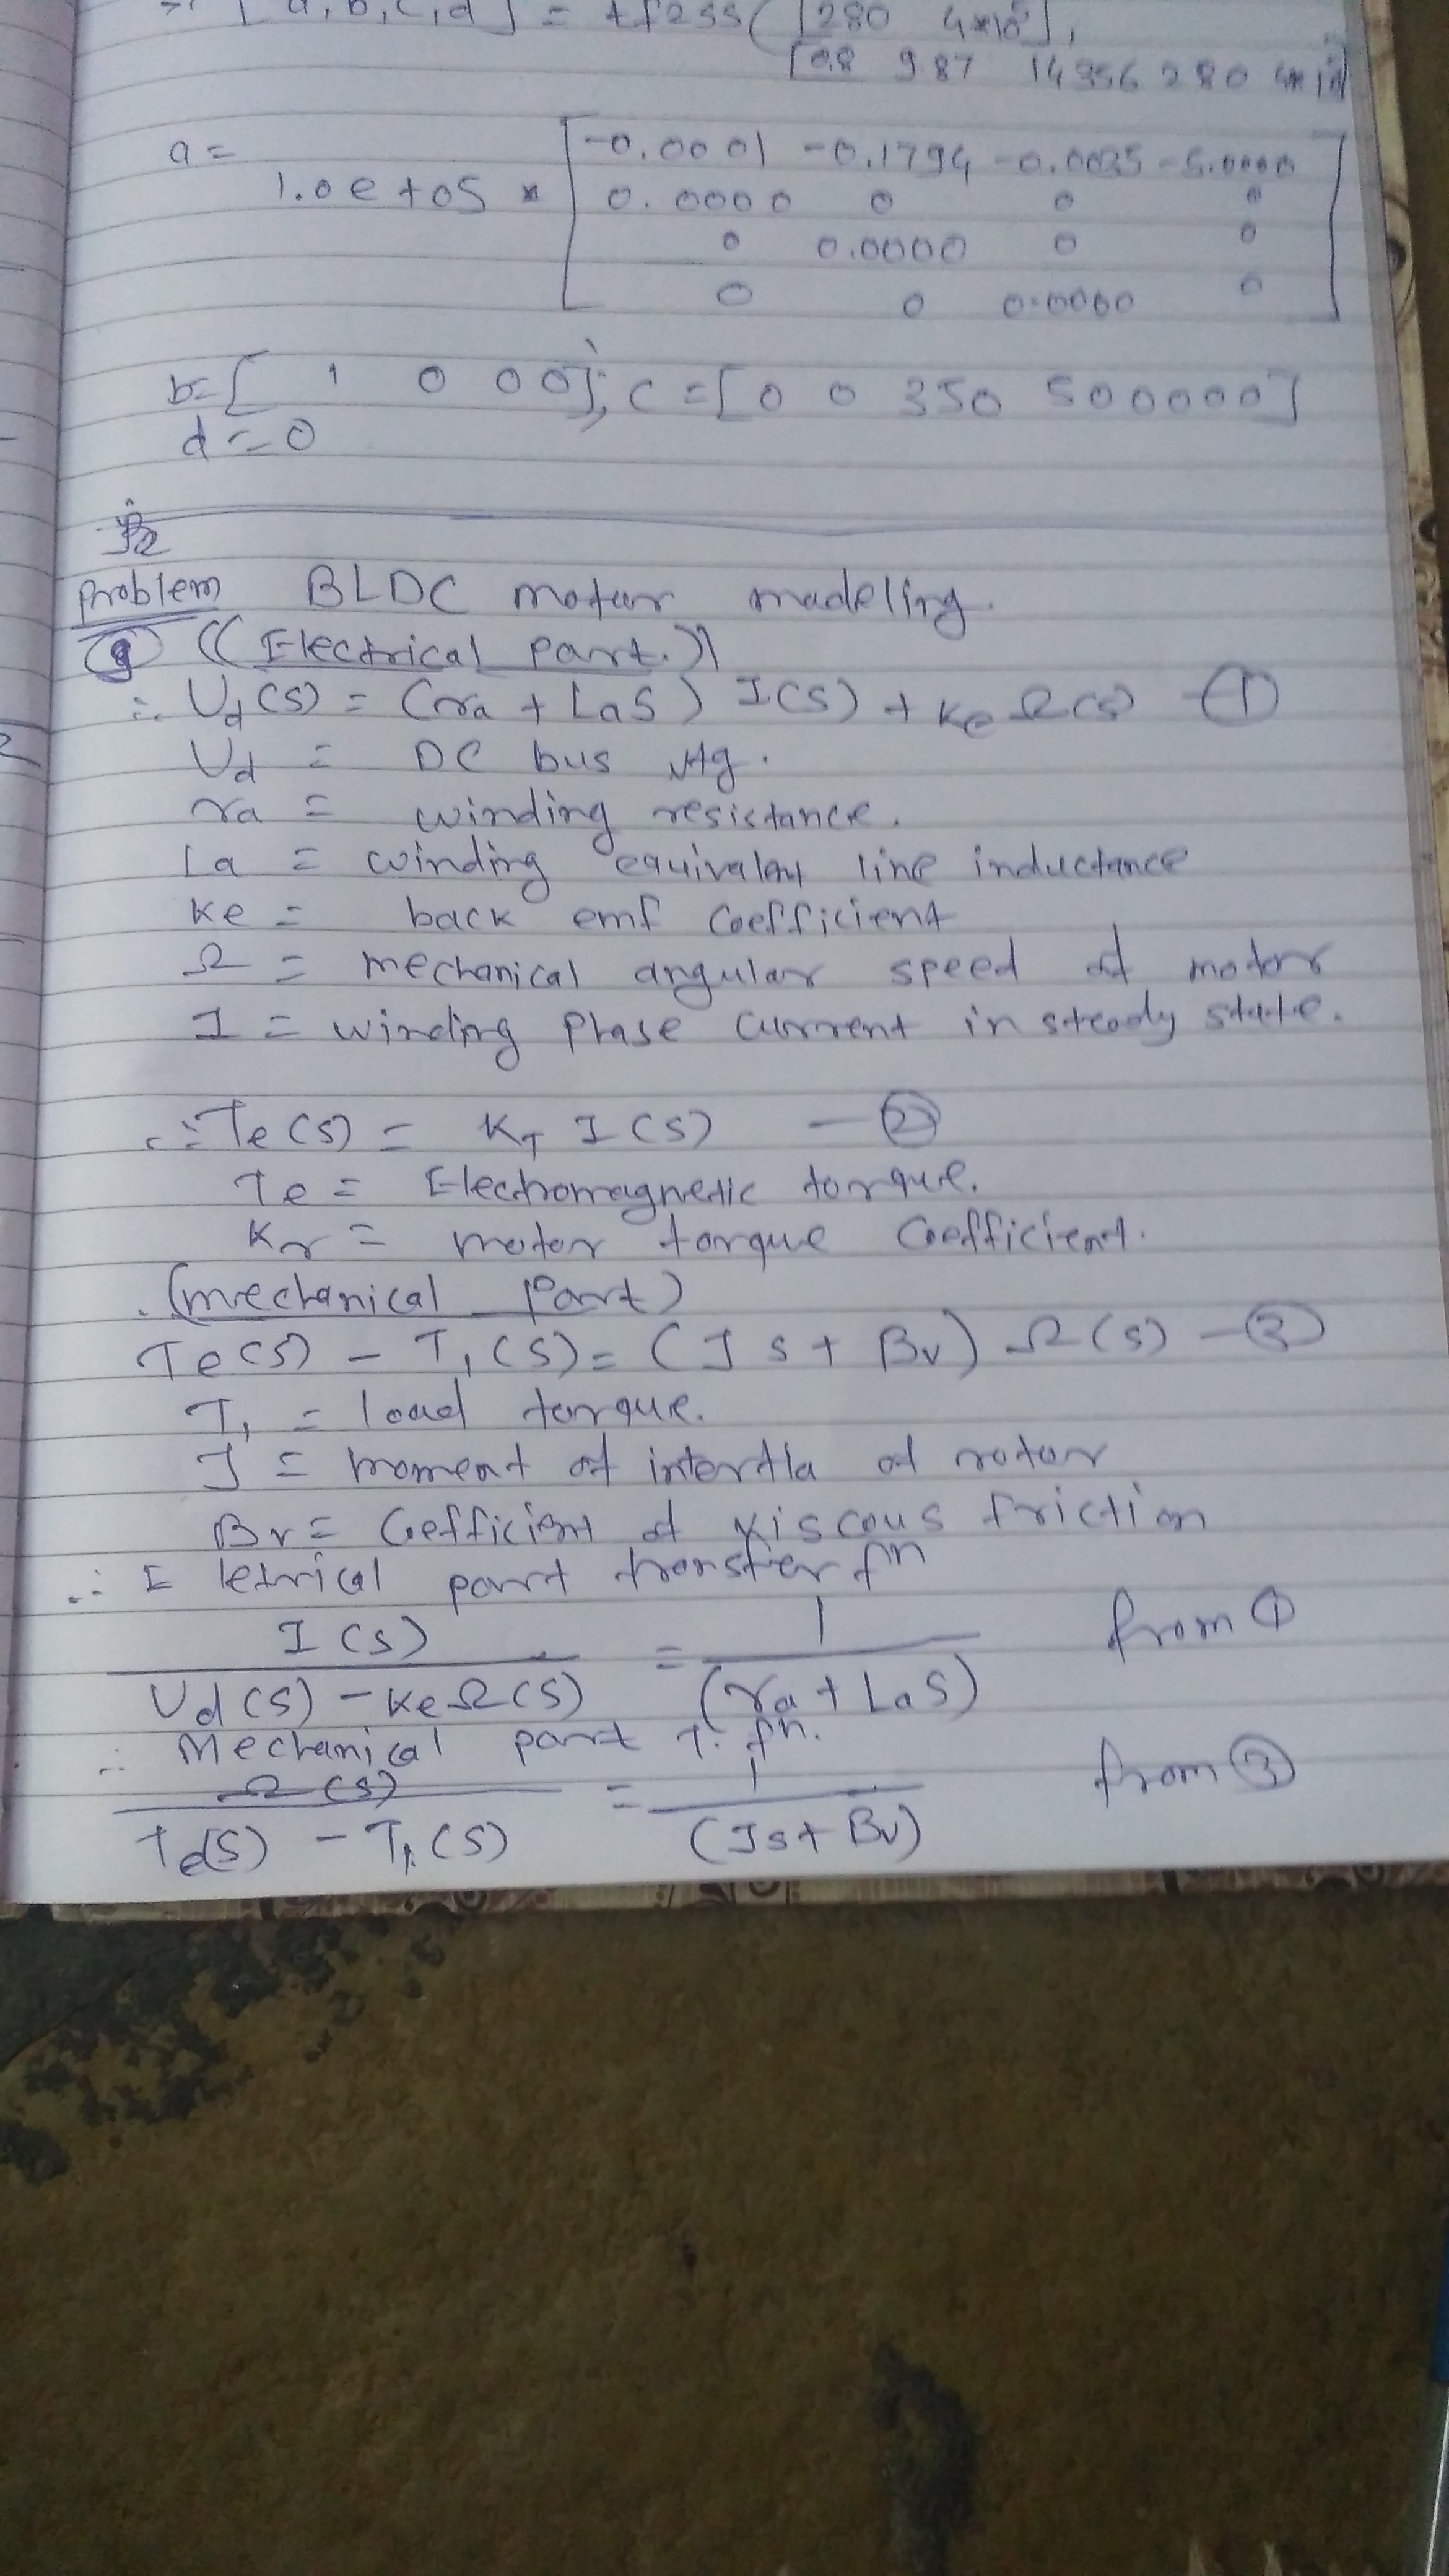 [a,b,c,d] = tf2ss([280 4*10^5],
[0.8 9.87 14356 280 4*10
a =
1.0e+05 * [-0.0001 -0.1794 -0.0035 -5.0000
0.0000 0 0 0
0 0.0000 0 0
0 0 0.0000 0]
b=[ 1 0 0 0]; c=[0 0 350 500000]
d = 0
Problem BLDC motor modeling.
9 ((Electrical part.))
∴ Ud(s) = (ra + LaS) I(s) + Ke Ω(s) — ①
Ud = DC bus vtg.
ra = winding resistance.
La = winding equivalent line inductance
Ke = back emf coefficient
Ω = mechanical angular speed of motor
I = winding Phase current in steady state.
∴ Te(s) = KT I(s) — ②
Te = Electromagnetic torque.
KT = motor torque coefficient.
(mechanical part)
Te(s) - T1(s) = (Js + Bv) Ω(s) — ③
T1 = load torque.
J = moment of intertia of rotor
Bv = Coefficient of viscous friction
∴ Eletrical part transfer fn
I(s) / (Ud(s) - Ke Ω(s)) = 1 / (ra + LaS) from ①
∴ Mechanical part T. fn.
Ω(s) / (Te(s) - T1(s)) = 1 / (Js + Bv) from ③